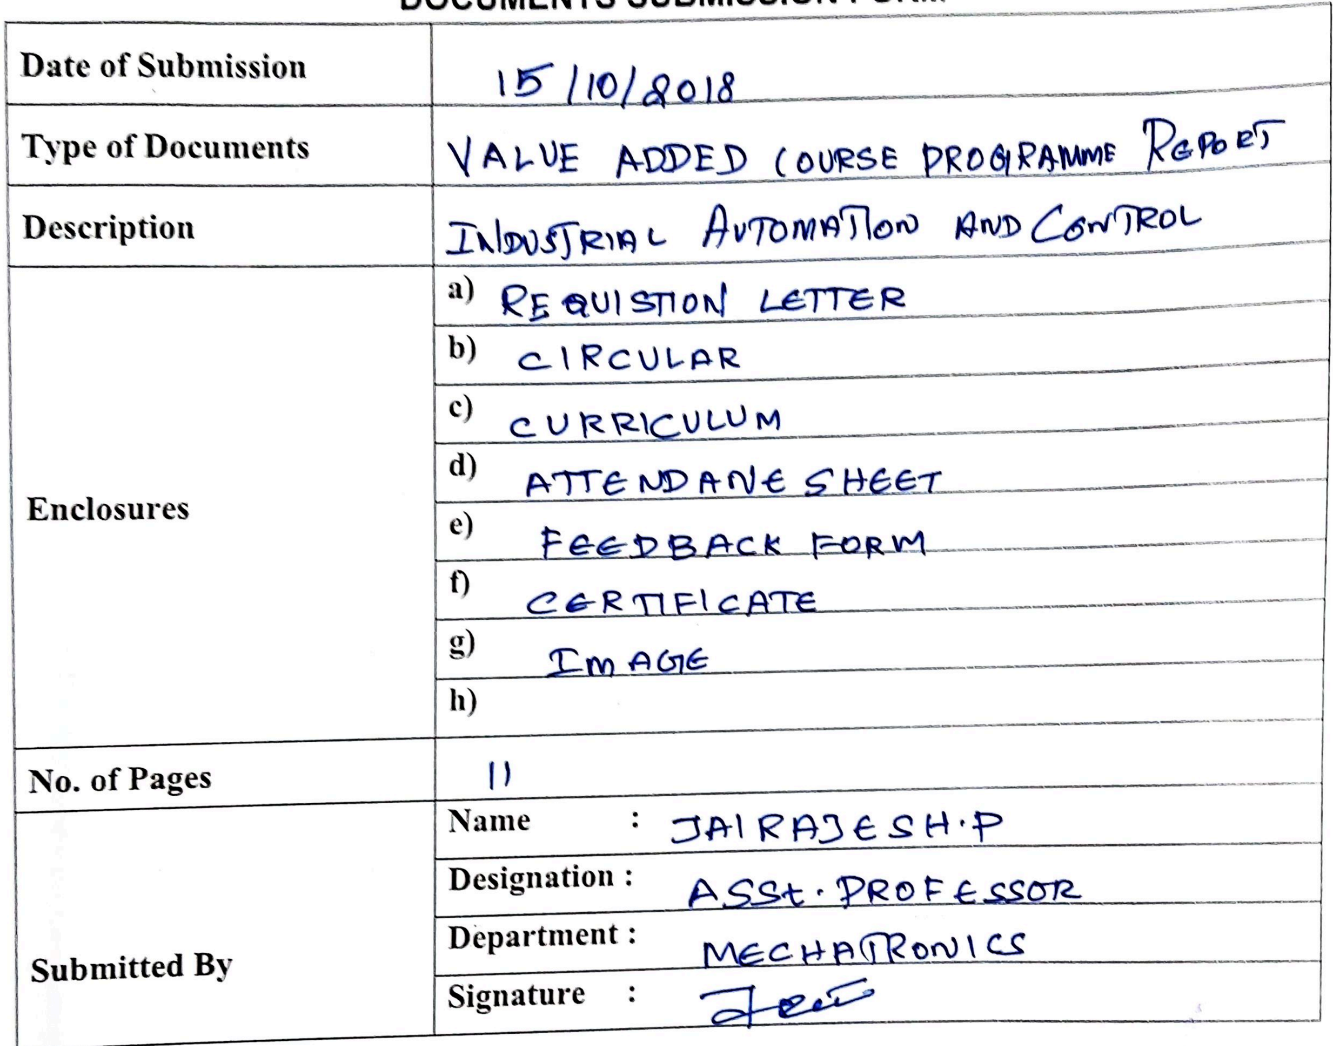 DOCUMENTS SUBMISSION FORM
Date of Submission 15/10/2018
Type of Documents VALUE ADDED COURSE PROGRAMME REPORT
Description INDUSTRIAL AUTOMATION AND CONTROL
a) REQUISTION LETTER
b) CIRCULAR
c) CURRICULUM
d) ATTENDANE SHEET
Enclosures
e) FEEDBACK FORM
f) CERTIFICATE
g) IMAGE
h)
No. of Pages 11
Name : JAIRAJESH.P
Designation : ASSt. PROFESSOR
Department : MECHATRONICS
Submitted By
Signature :